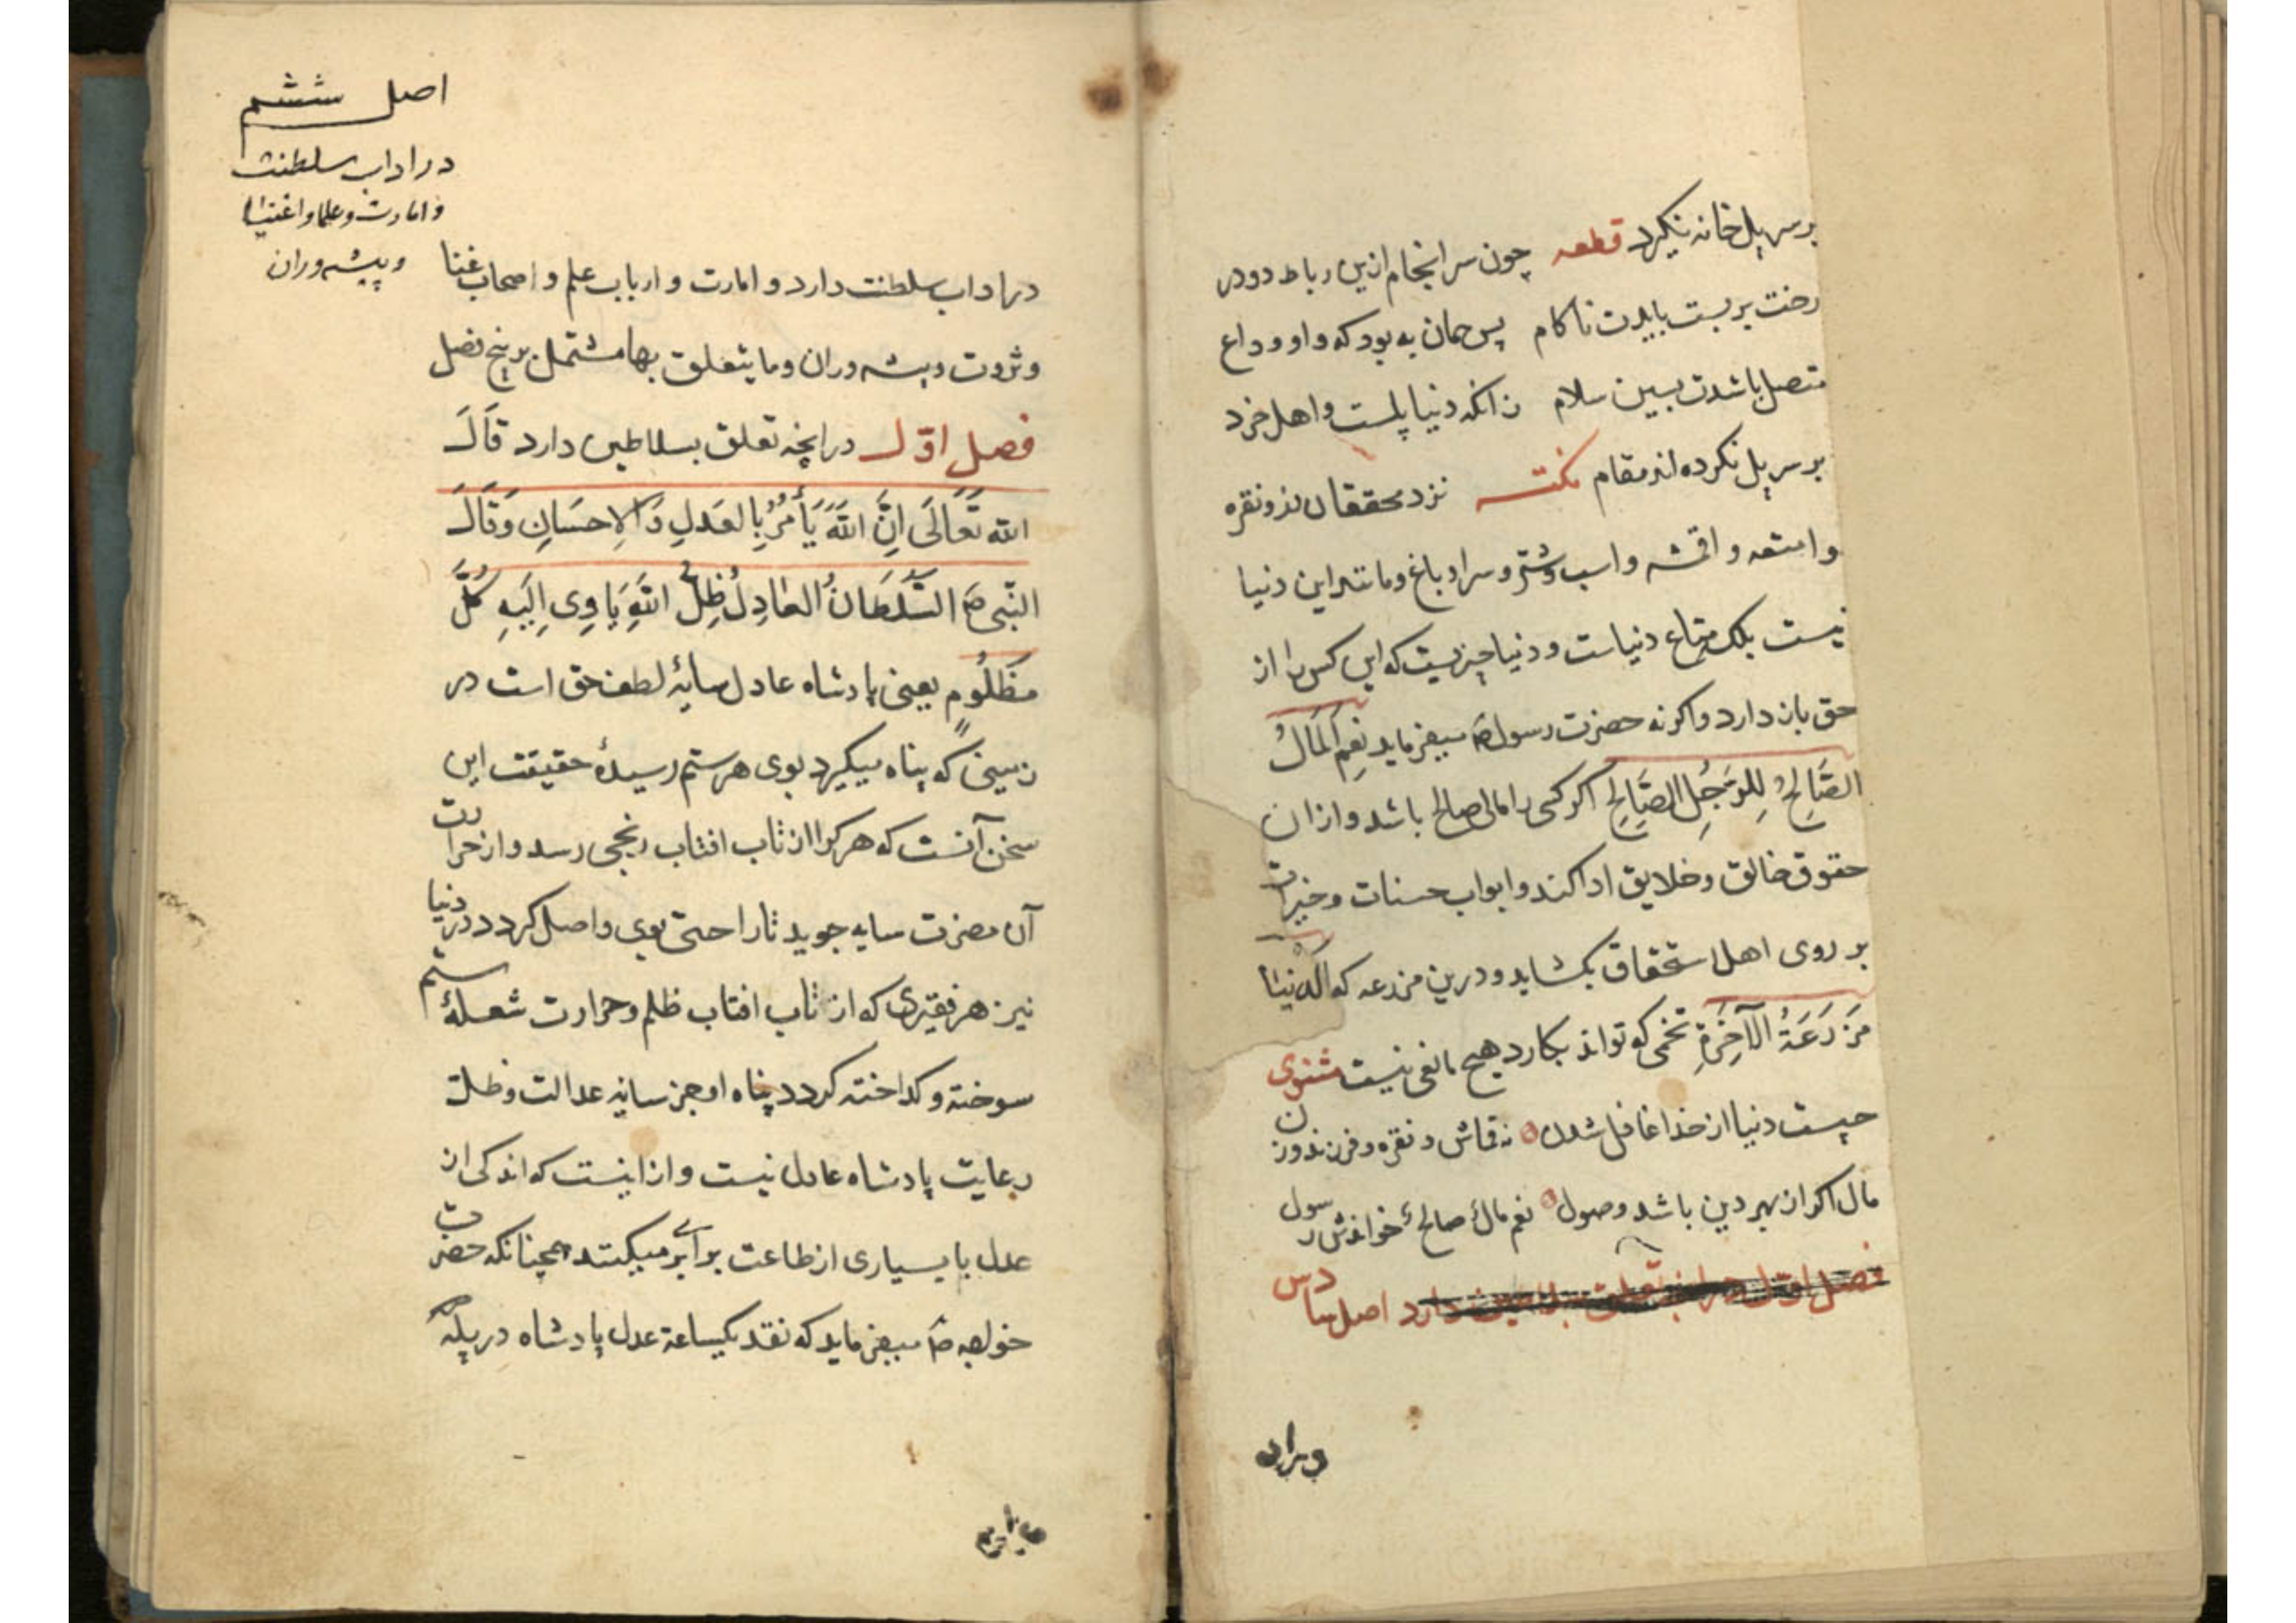 بر سر پل خانه نگیرد قطعه چون سرانجام ازین رباط دو در
رخت بر بست بایدت ناکام پس همان به بود که واو وداع
متصل باشدت بسین سلام زانکه دنیا پلست و اهل خرد
بر سر پل نکرده اند مقام نکته نزد محققان زر و نقره
و امتعه و اقمشه و اسب و شتر و سرا و باغ و مانند این دنیا
نیست بلکه متاع دنیاست و دنیا چیزیست که این کس را از
حق باز دارد واکرنه حضرت رسول صَ میفرماید نِعمَ اَلمَالُ
الصَّالِحُ لِلرَجُلِ الصَّالِحِ اکر کسی را مالی صالح باشد و از ان
حقوق خالق و خلایق ادا کند و ابواب حسنات و خیرات
بر روی اهل استحقاق بکشاید و درین مزرعه که اَلدُّنیَا
مَزرَعَةُ الآخِرَةِ تخمی که تواند بکارد هیچ مانعی نیست مثنوی
چیست دنیا از خدا غافل شدن نه قماش و نقره و فرزند و زن
مال اکر از بهر دین باشد وصول نعم مالٌ صالحٌ خواندش رسول
فصل اوّل در انچه تعلق بسلاطین دارد اصل سادس
اصل ششم
در اداب سلطنت
و امارت و علما و اغنیا
و پیشه وران
در اداب سلطنت دارد و امارت و ارباب علم و اصحاب غنا
و ثروت و پیشه وران و ما یتعلق بها مشتمل بر پنج فصل
فصل اوّل در انچه تعلق بسلاطین دارد قَالَ
الله تَعَالَی اِنَّ اللهَ یَأمُرُ بِالعَدلِ وَالاِحسَانِ وَقَالَ
النّبی صَ السُّلطَانُ العَادِلُ ظِلُّ اللهِ یَاوِی اِلَیهِ کُلُّ
مَظلُومٍ یعنی پادشاه عادل سایهٔ لطف حق است در
زمینی که پناه میکیرد بوی هر ستم رسیدهٔ حقیقت این
سخن آنست که هر کرا از تاب افتاب رنجی رسد و از حرارت
آن مضرت سایه جوید تا راحتی بوی واصل کردد در دنیا
نیز هر فقیری که از تاب افتاب ظلم و حرارت شعلهٔ ستم
سوخته و کداخته کردد پناه او جز سایه عدالت و ظلّ
رعایت پادشاه عادل نیست و از اینست که اندکی از
عدل با بسیاری از طاعت برابر میکنند همچنانکه حضرت
خواجه صَ میفرماید که نقد یکساعة عدل پادشاه در پلّه